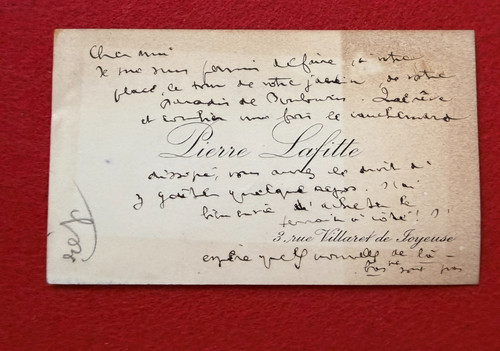 Cher ami
Je me suis permis de faire, à votre
place, le tour de votre jardin de votre
paradis de
et combien une fois le cauchemar
Pierre Lafitte
dissipé, vous aurez le droit d'
y goûter quelque repos. J'ai
bien envie d'acheter le
terrain à côté !
3, rue Villaret de Joyeuse
espère que les nouvelles de là-
bas ne sont pas
rép